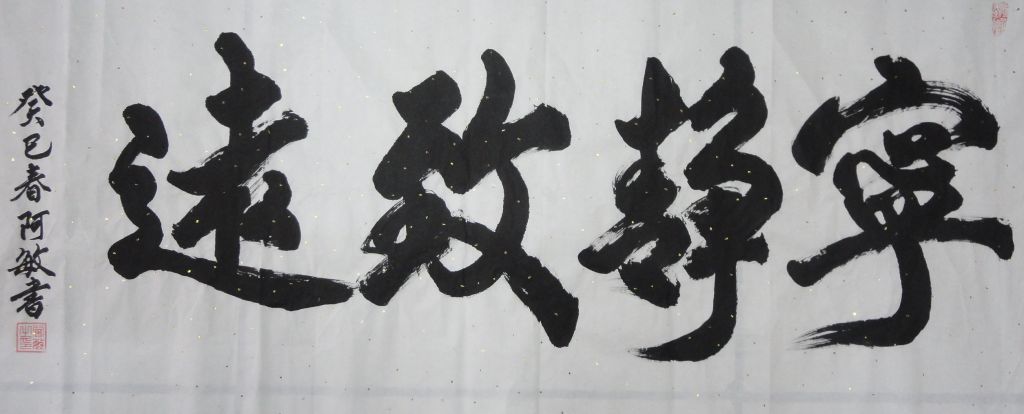 寧靜致遠
癸巳春阿敏書